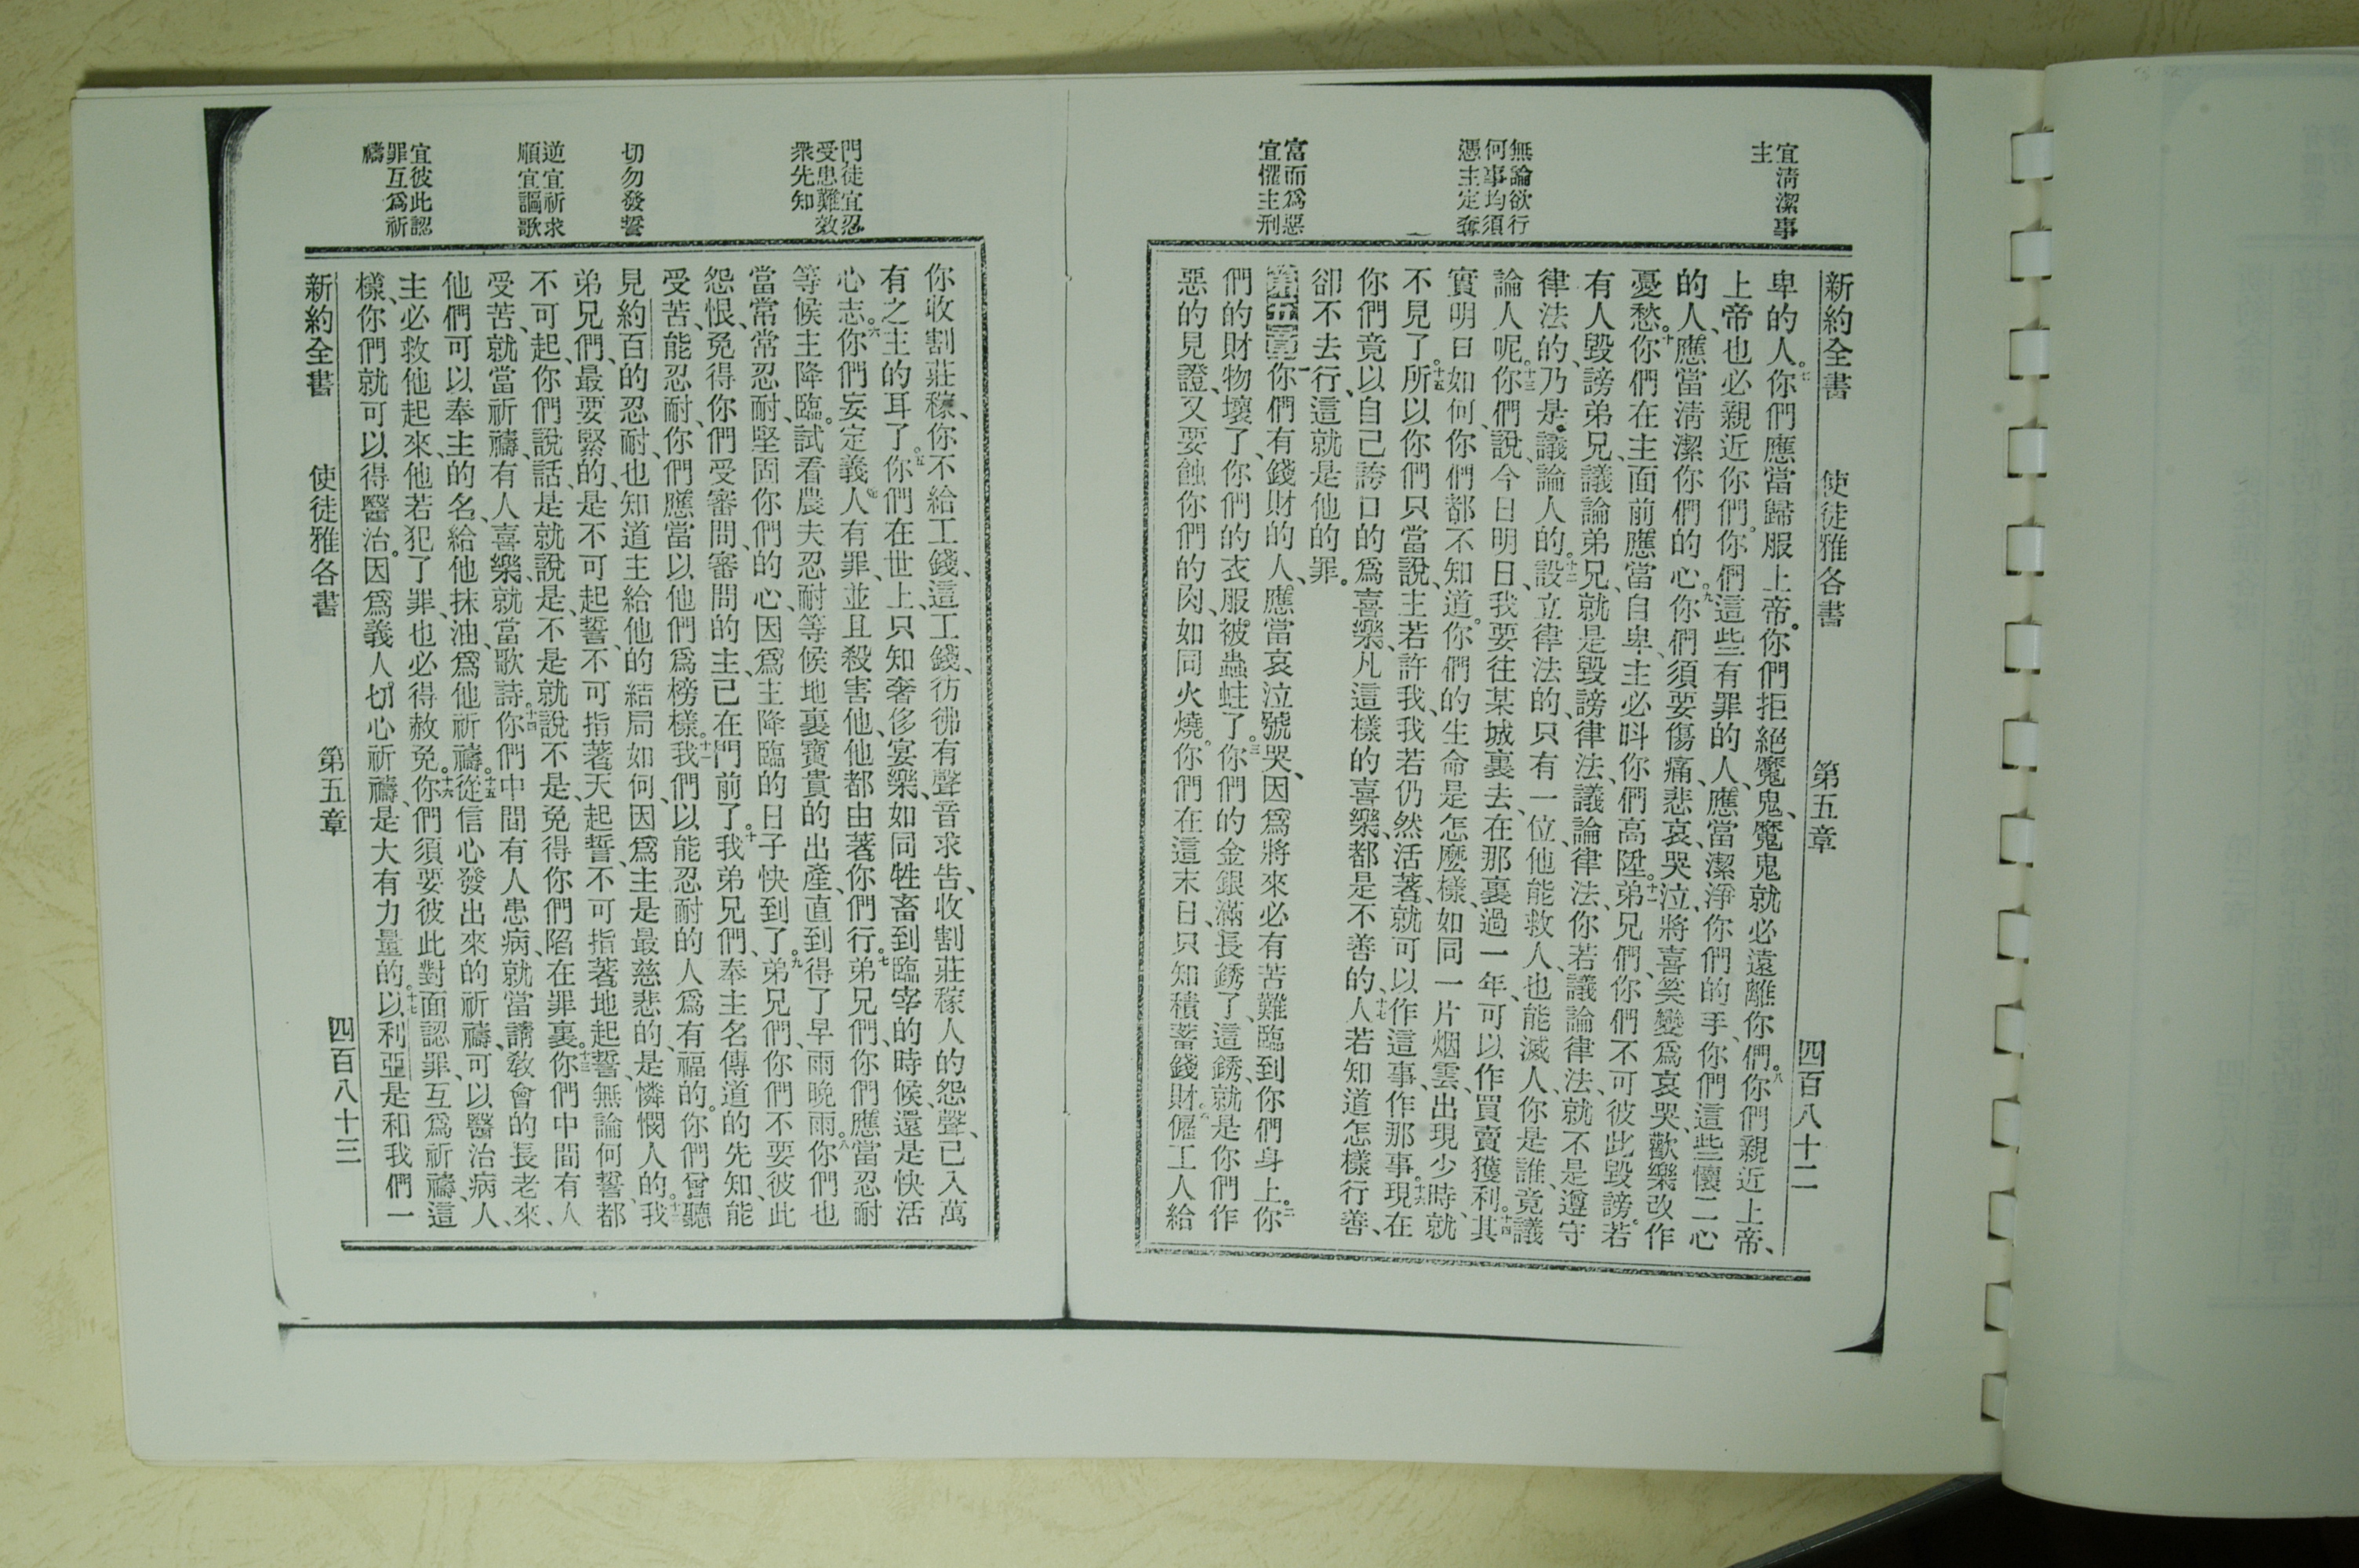 新約全書 使徒雅各書 第五章 四百八十二
宜清潔事
主
無論欲行
何事均須
憑主定奪
富而爲惡
宜懼主刑
卑的人。七你們應當歸服上帝。你們拒絕魔鬼、魔鬼就必遠離你們。八你們親近上帝、
上帝也必親近你們。你們這些有罪的人、應當潔淨你們的手、你們這些懷二心
的人、應當清潔你們的心。九你們須要傷痛、悲哀、哭泣、將喜笑變爲哀哭、歡樂改作
憂愁。十你們在主面前應當自卑、主必呌你們高陞。十一弟兄們、你們不可彼此毀謗。若
有人毀謗弟兄、議論弟兄、就是毀謗律法、議論律法、你若議論律法、就不是遵守
律法的、乃是議論人的。十二設立律法的、只有一位、他能救人、也能滅人、你是誰、竟議
論人呢。十三你們說、今日明日、我要往某城裏去、在那裏過一年、可以作買賣獲利。十四其
實明日如何、你們都不知道。你們的生命是怎麼樣、如同一片烟雲、出現少時、就
不見了。十五所以你們只當說、主若許我、我若仍然活著、就可以作這事、作那事。十六現在
你們竟以自己誇口的爲喜樂、凡這樣的喜樂、都是不善的。十七人若知道怎樣行善、
卻不去行、這就是他的罪。
第五章 一你們有錢財的人、應當哀泣號哭、因爲將來必有苦難臨到你們身上。二你
們的財物壞了、你們的衣服、被蟲蛀了。三你們的金銀滿長銹了、這銹、就是你們作
惡的見證、又要蝕你們的肉、如同火燒。你們在這末日、只知積蓄錢財。僱工人給
門徒宜忍
受患難效
衆先知
切勿發誓
逆宜祈求
順宜謳歌
宜彼此認
罪互爲祈
禱
你收割莊稼、你不給工錢、這工錢、彷彿有聲音求告、收割莊稼人的怨聲、已入萬
有之主的耳了。五你們在世上、只知奢侈宴樂、如同牲畜到臨宰的時候、還是快活
心志。六你們妄定義人有罪、並且殺害他、他都由著你們行。七弟兄們、你們應當忍耐
等候主降臨。試看農夫忍耐等候地裏寶貴的出產、直到得了早雨晚雨。八你們也
當常常忍耐、堅固你們的心、因爲主降臨的日子快到了。九弟兄們、你們不要彼此
怨恨、免得你們受審問、審問的主、已在門前了。十我弟兄們、奉主名傳道的先知、能
受苦、能忍耐、你們應當以他們爲榜樣。十一我們以能忍耐的人爲有福的。你們曾聽
見約百的忍耐、也知道主給他的結局如何、因爲主是最慈悲的、是憐憫人的。十二我
弟兄們、最要緊的、是不可起誓、不可指著天起誓、不可指著地起誓、無論何誓、都
不可起、你們說話、是就說是、不是就說不是、免得你們陷在罪裏。十三你們中間有人
受苦、就當祈禱、有人喜樂、就當歌詩。十四你們中間有人患病、就當請教會的長老來、
他們可以奉主的名、給他抹油、爲他祈禱。十五從信心發出來的祈禱、可以醫治病人、
主必救他起來、他若犯了罪、也必得赦免。十六你們須要彼此對面認罪、互爲祈禱、這
樣、你們就可以得醫治。因爲義人切心祈禱、是大有力量的。十七以利亞是和我們一
新約全書 使徒雅各書 第五章 四百八十三